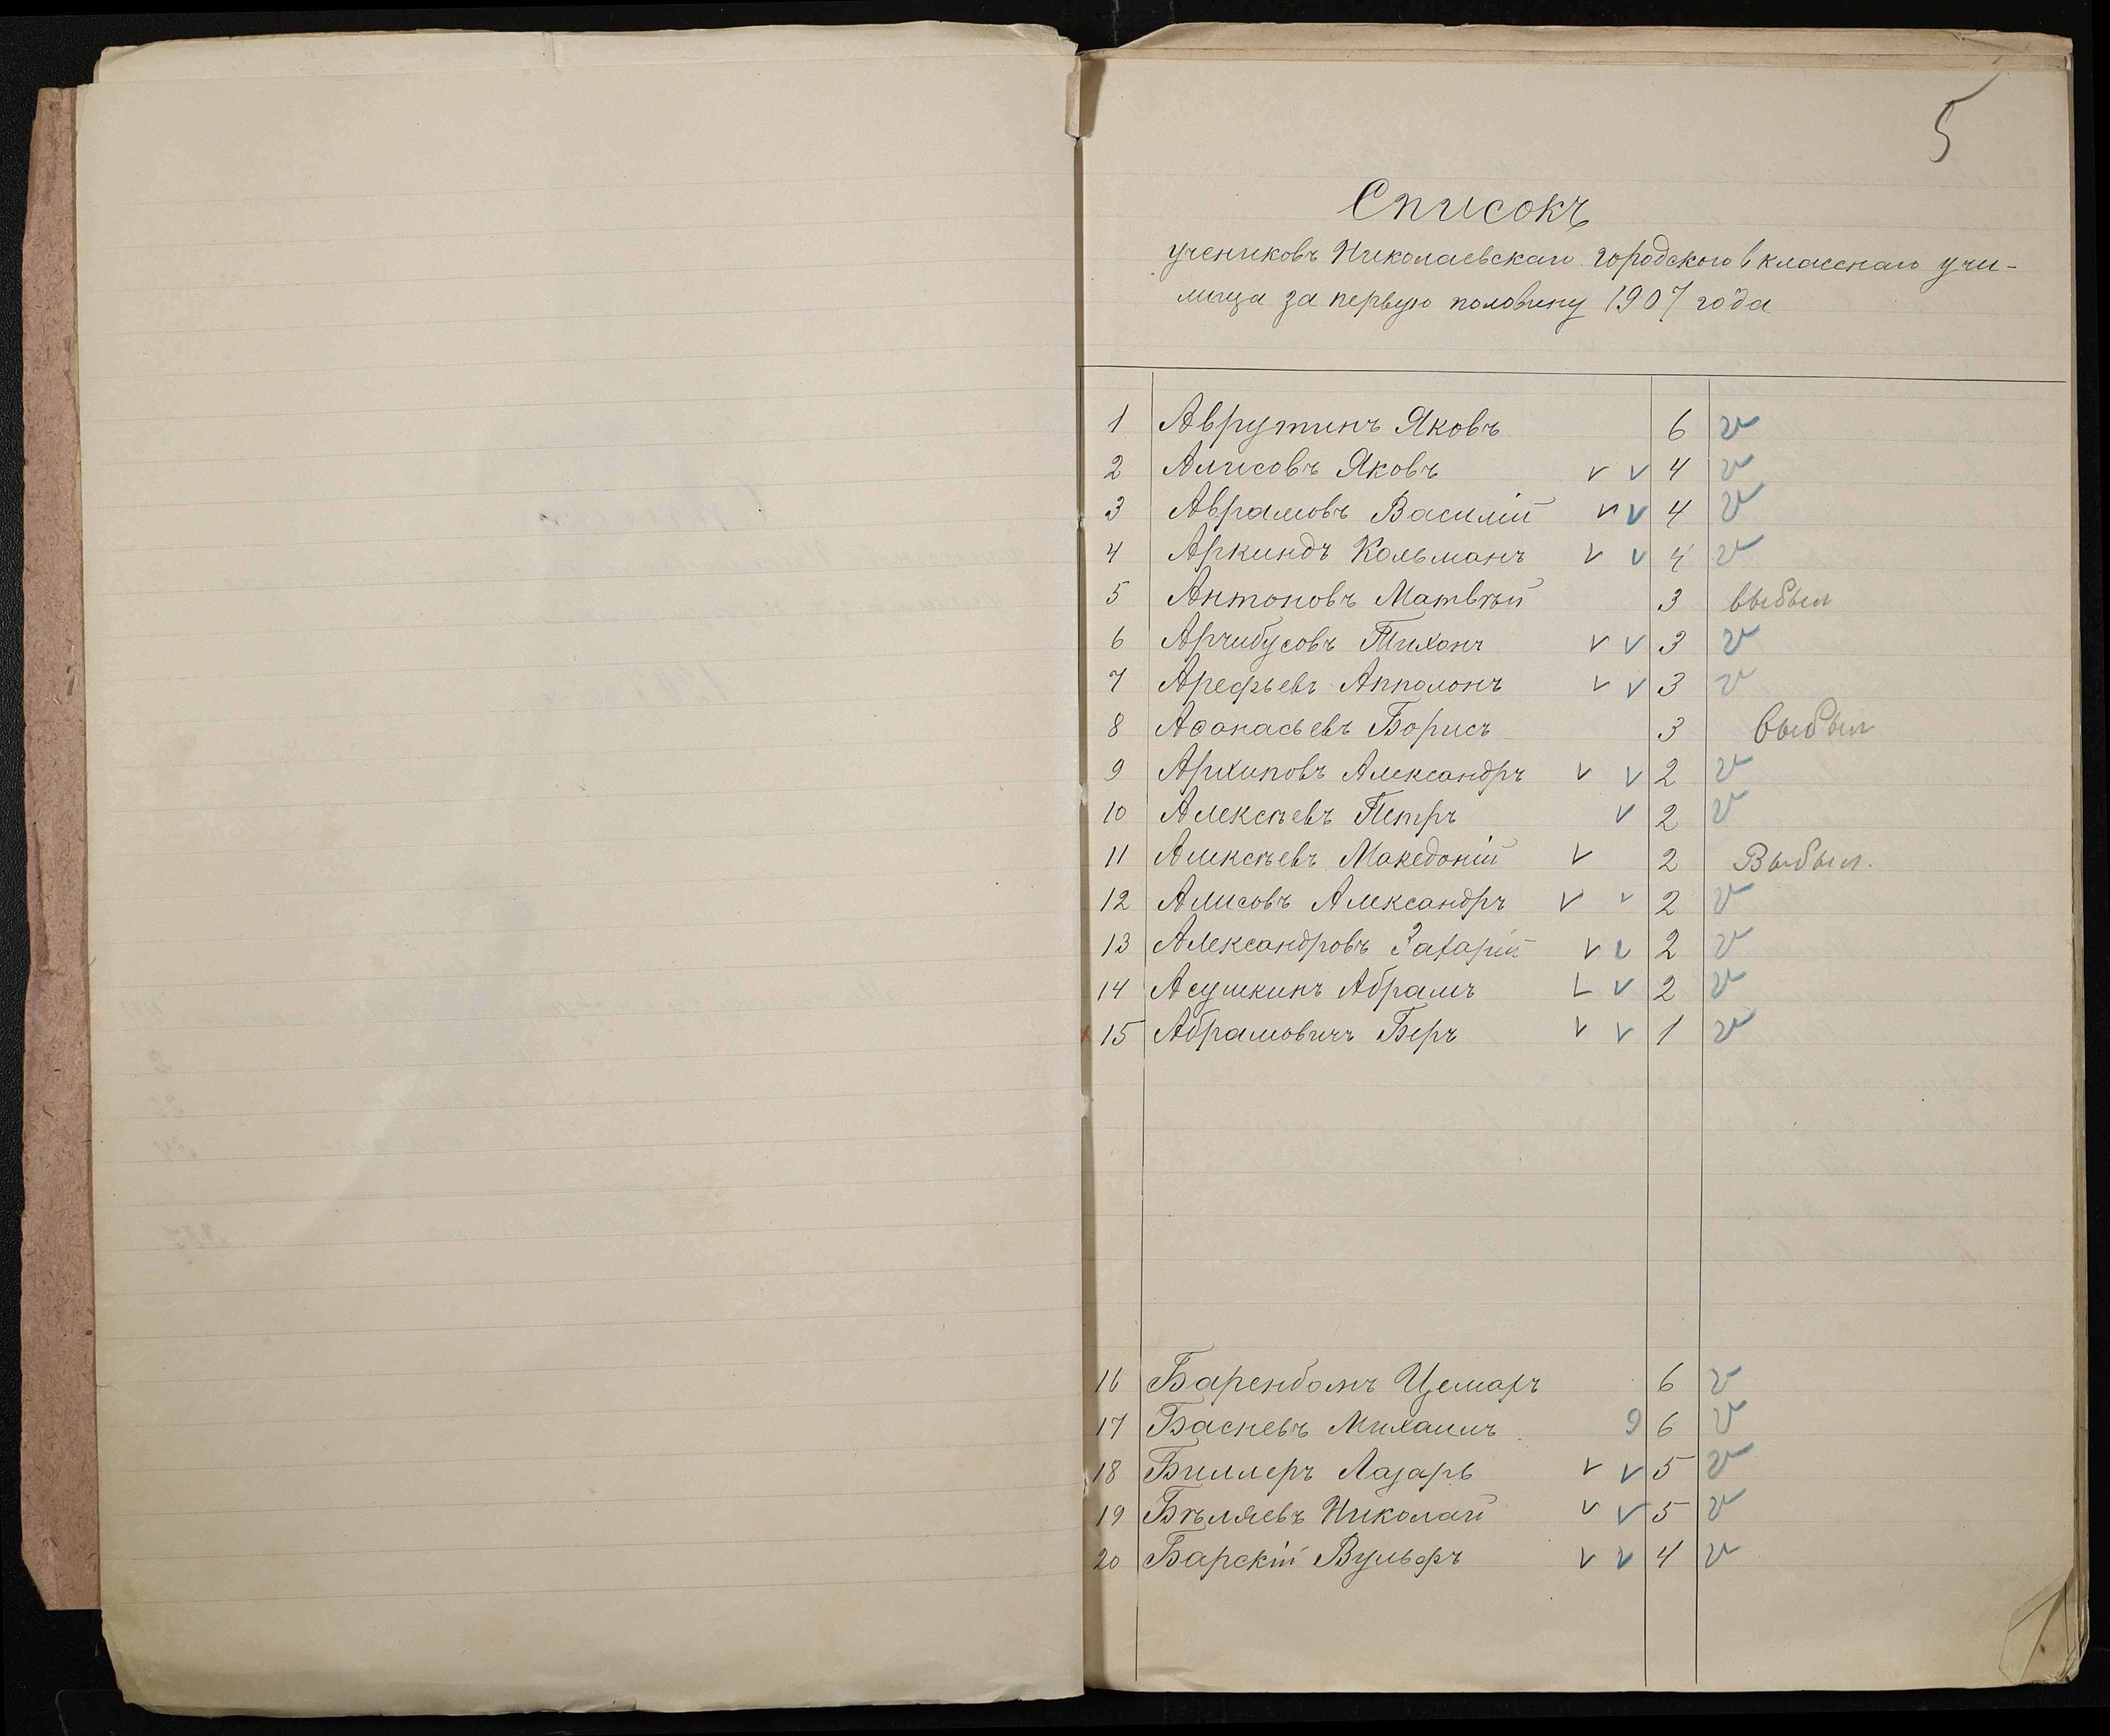 5
Списокъ
учениковъ Николаевскаго городского 6 класснаго учи-
лища за первую половину 1907 года
1 Аврутинъ Яковъ 6 v
2 Алисовъ Яковъ v v 4 v
3 Аврамовъ Василій v v 4 v
4 Аркиндъ Кольманъ v v 4 v
5 Антоновъ Матвѣй 3 выбыл
6 Арчибусовъ Тихонъ v v 3 v
7 Арефьевъ Апполонъ v v 3 v
8 Аѳанасьевъ Борисъ 3 выбыл
9 Архиповъ Александръ v v 2 v
10 Алексѣевъ Петръ v 2 v
11 Алексѣевъ Македоній v 2 Выбыл.
12 Алисовъ Александръ v v 2 v
13 Александровъ Захарій v v 2 v
14 Асушкинъ Абрамъ v v 2 v
15 Абрамовичъ Беръ v v 1 v
16 Баренбомъ Цемахъ 6 v
17 Басневъ Михаилъ 6 v
18 Биллеръ Лазарь v v 5 v
19 Бѣляевъ Николай v v 5 v
20 Барскій Вульфъ v v 4 v